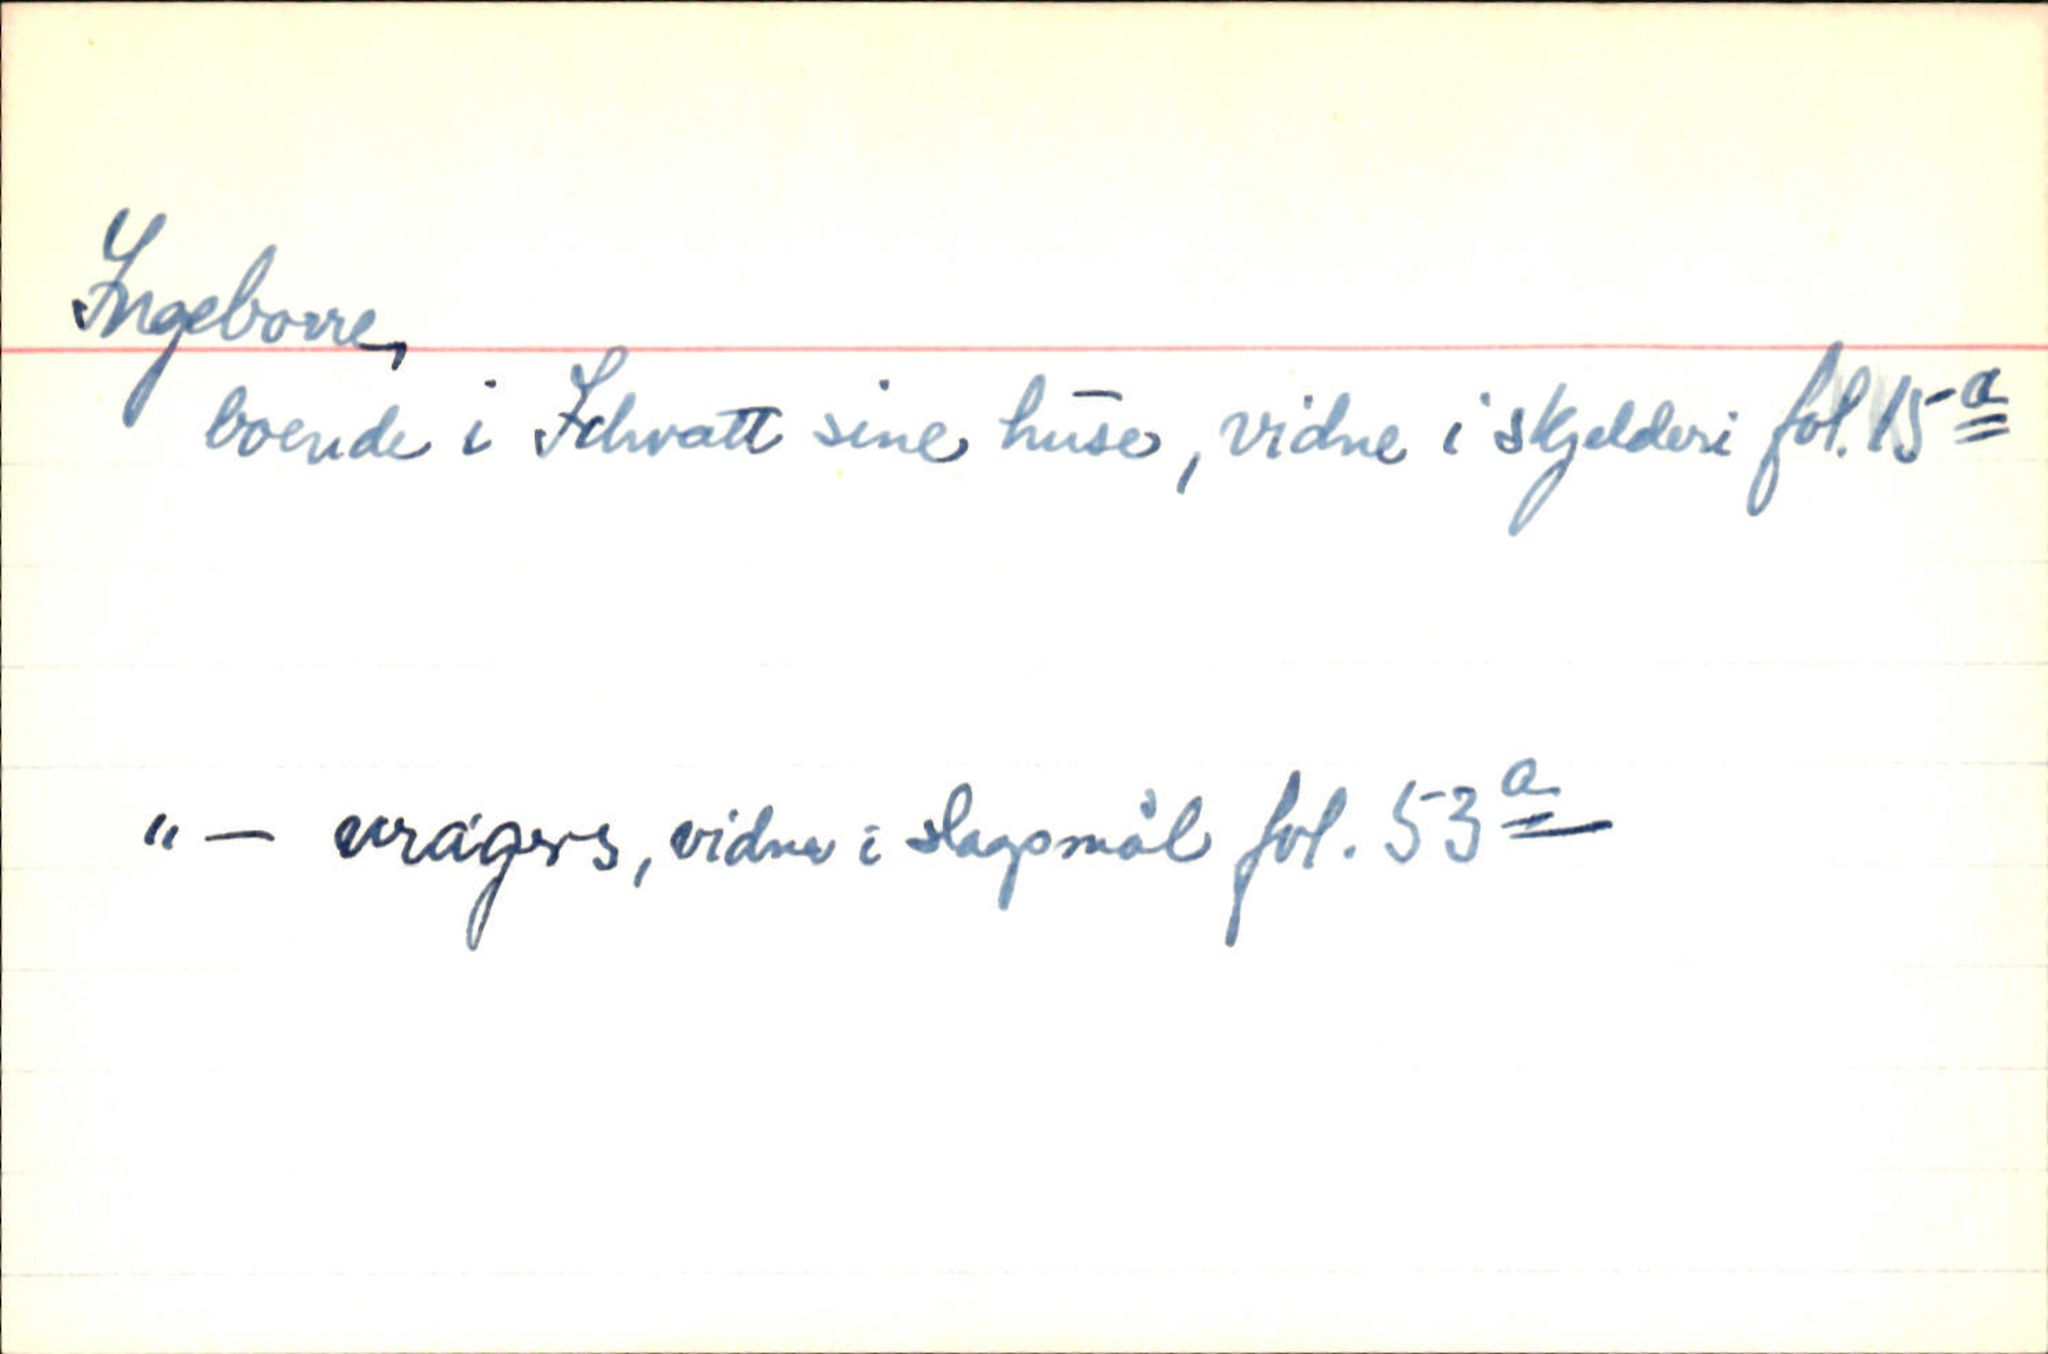 Ingeborre,
boende i Schvatt sine huse, vidne i skjelderi fol. 15a
"— vragers, vidne i slagsmål fol. 53a